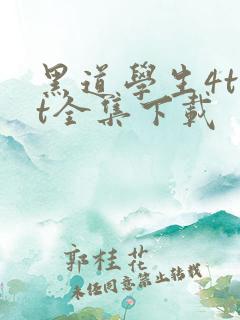 黑道學生4t
t全集下載
郭桂花
未经同意禁止转载